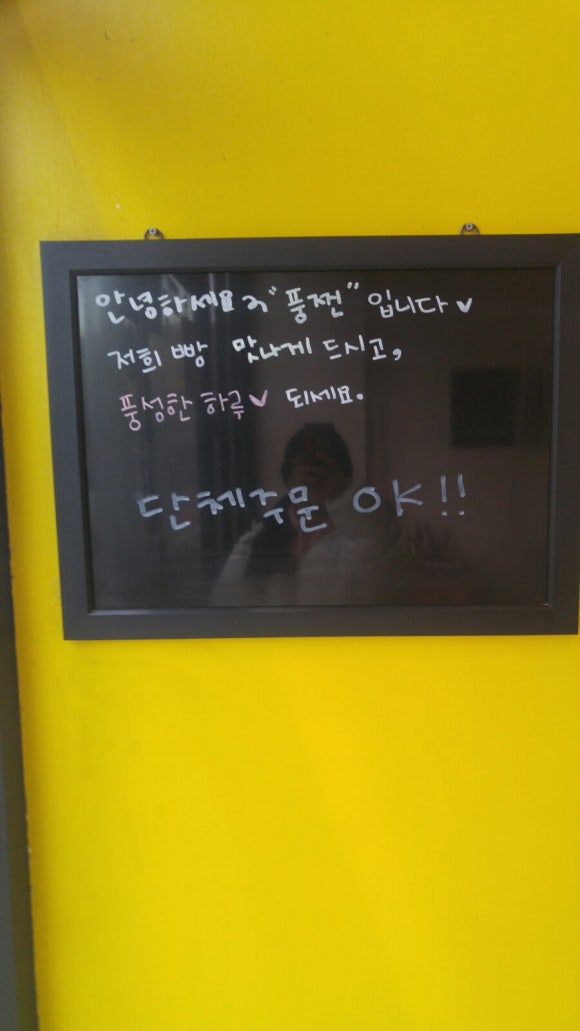 안녕하세요 "풍전" 입니다
저희 빵 맛나게 드시고,
풍성한 하루 되세요.
단체주문 OK!!